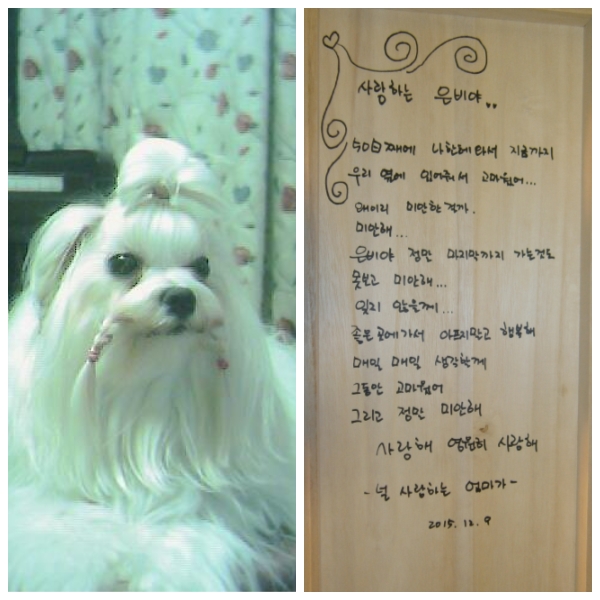 사랑하는 은비야..
40日째에 나한테와서 지금까지
우리 옆에 있어줘서 고마웠어...
왜이리 미안한건가.
미안해...
은비야 정말 마지막까지 가는것도
못보고 미안해...
잊지 않을께...
좋은곳에가서 아프지말고 행복해
매일 매일 생각할께
그동안 고마웠어
그리고 정말 미안해
사랑해 영원히 사랑해
-널 사랑하는 엄마가-
2015. 12. 9